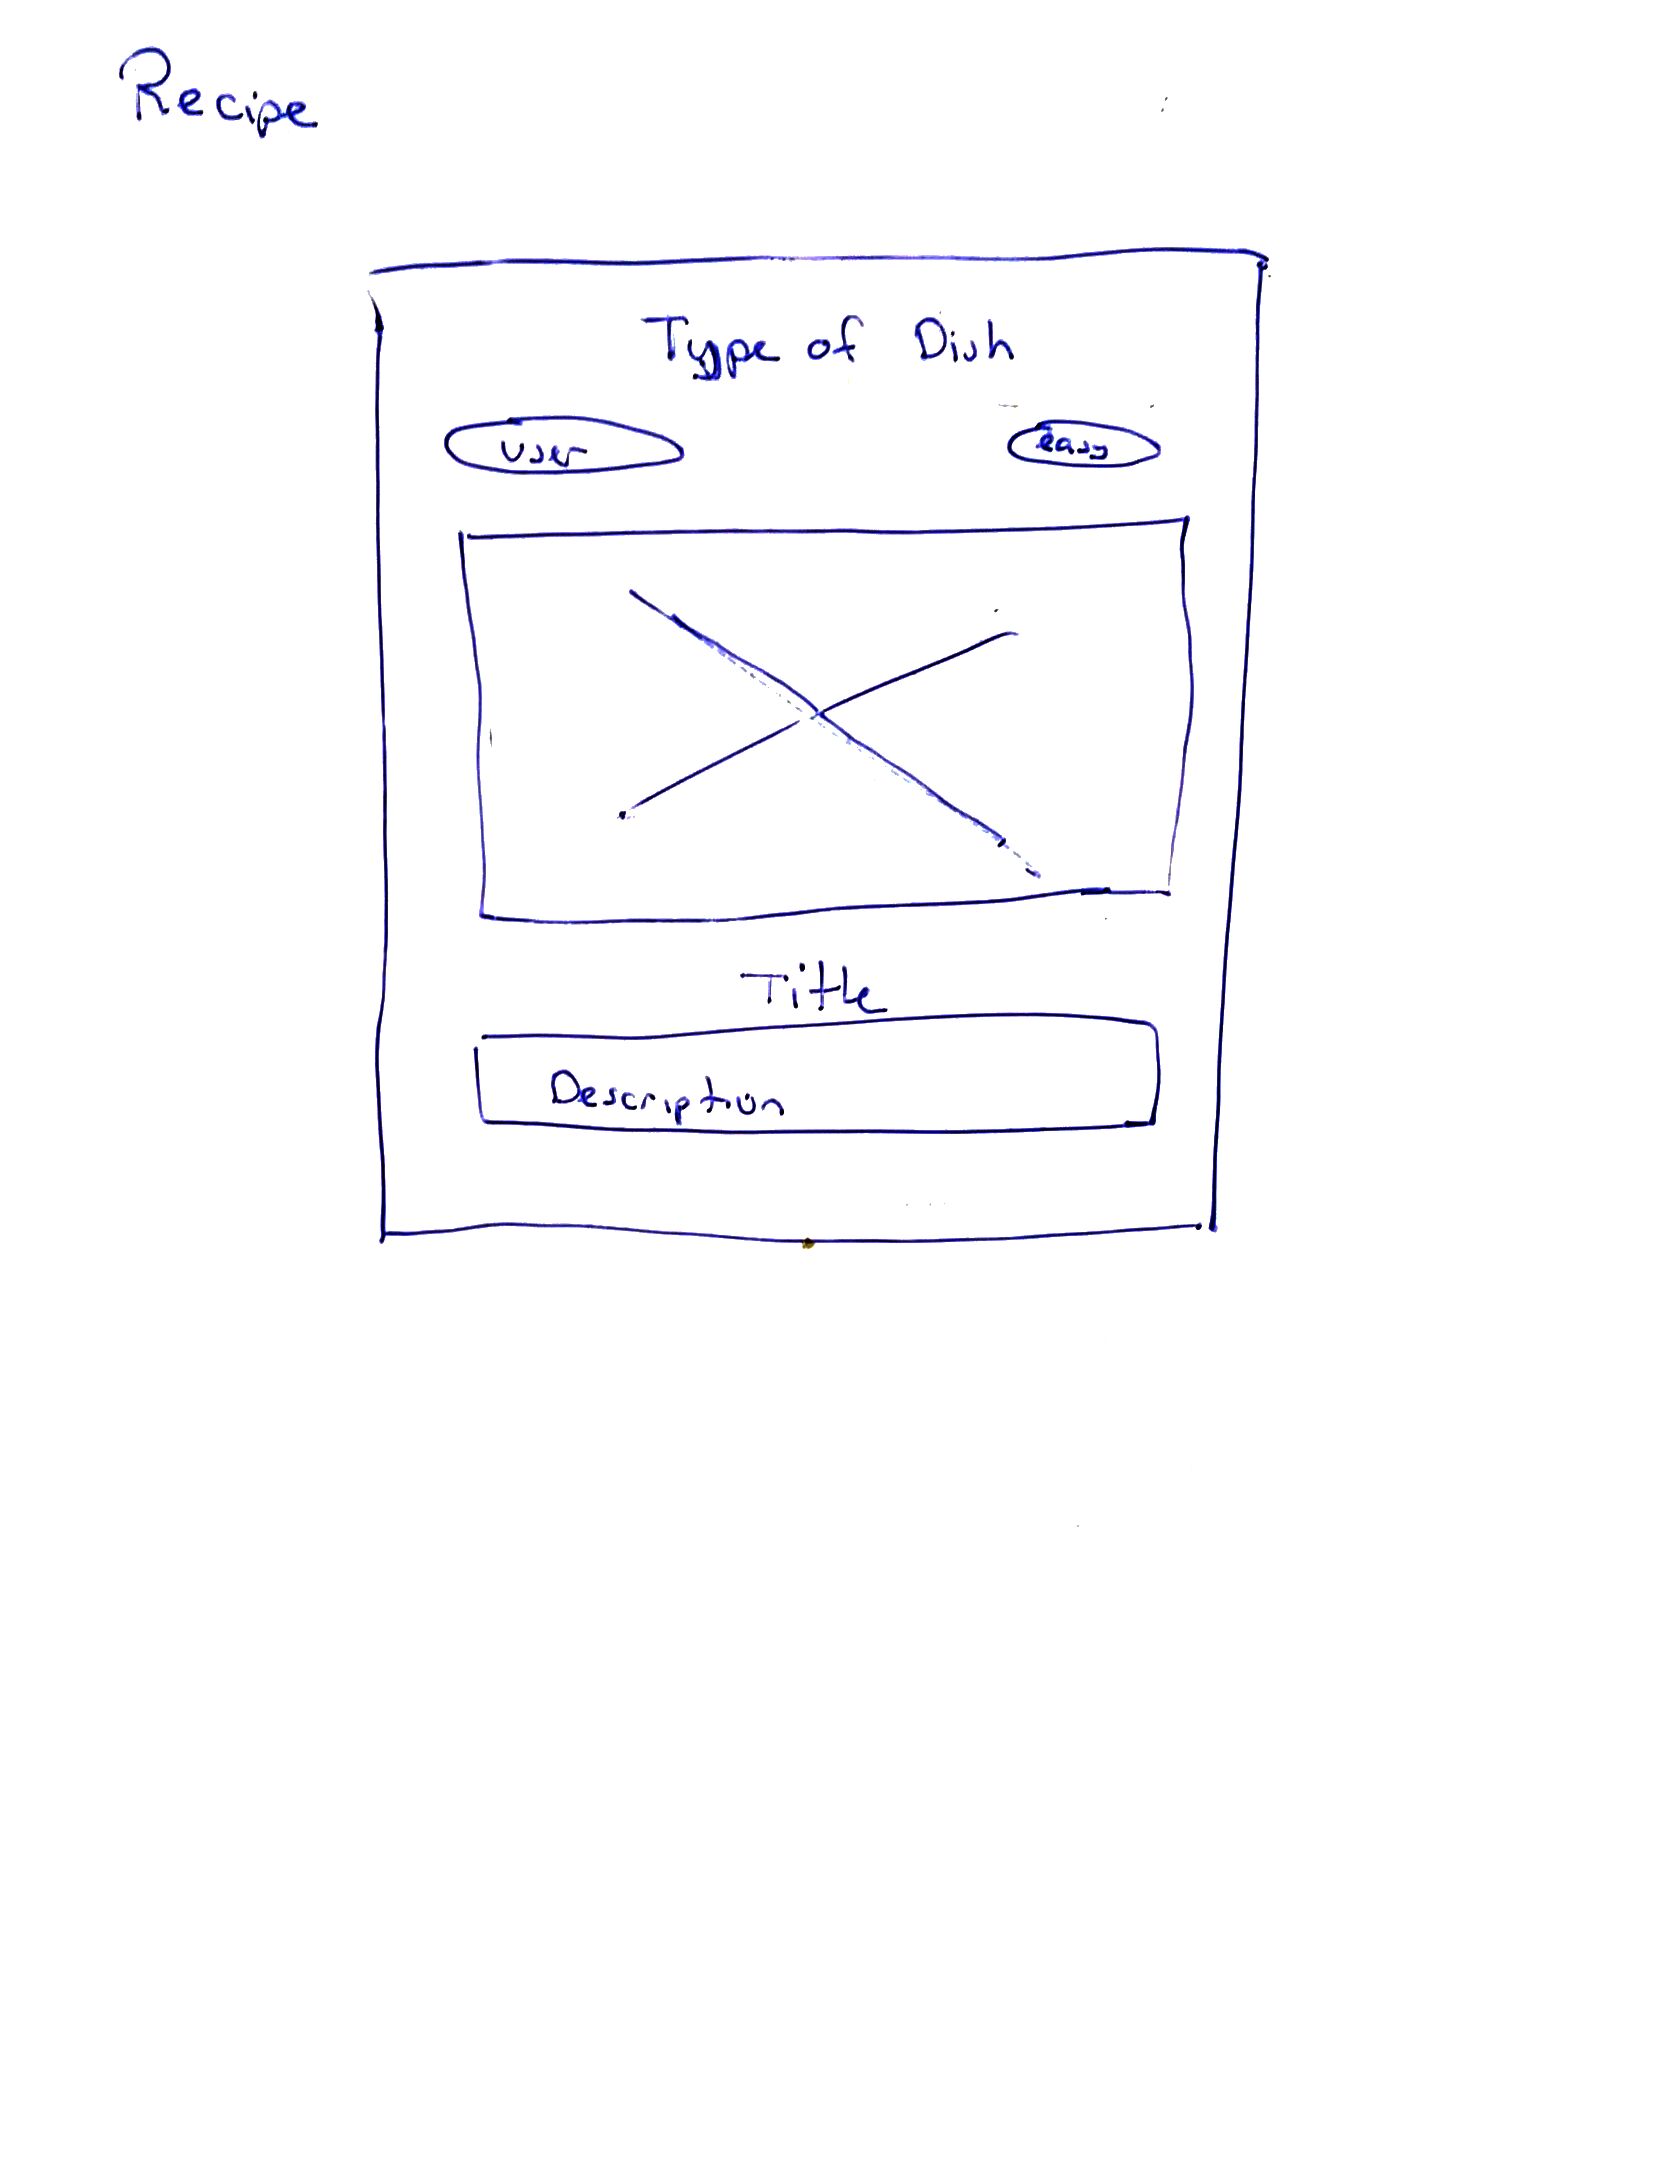 Recipe
Type of Dish
User
easy
Title
Description